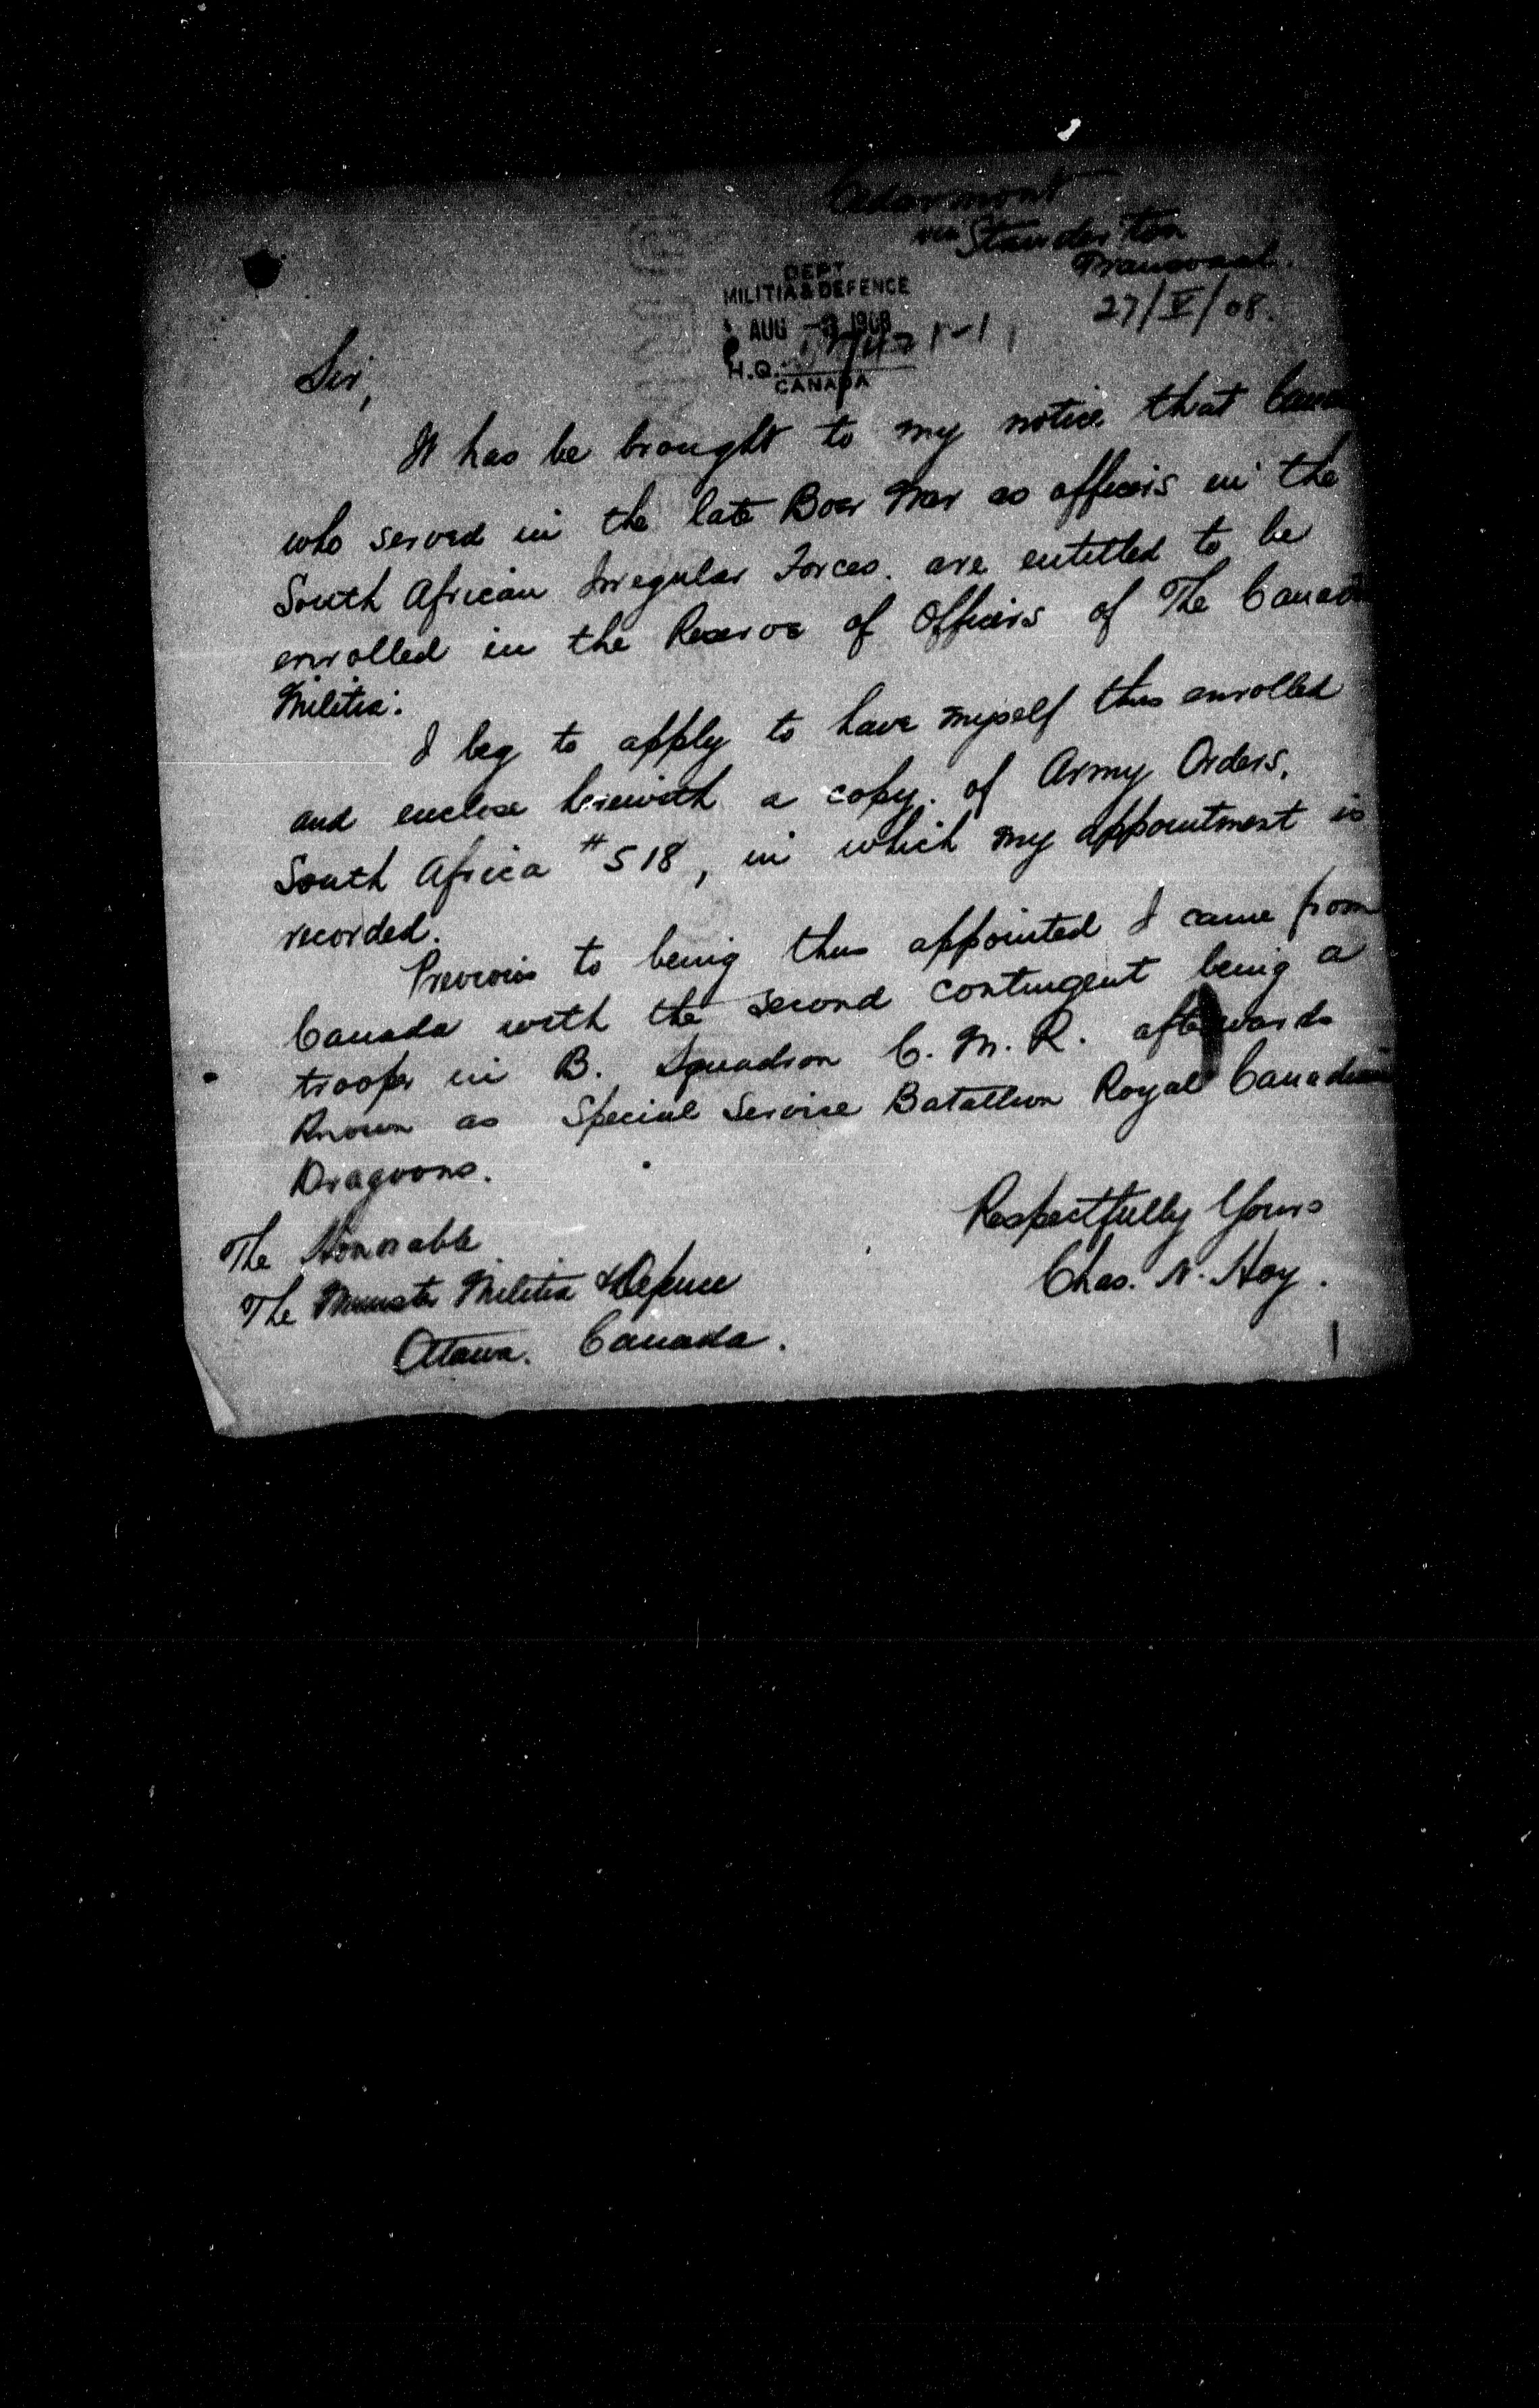 Cedarmont
via Standerton
Transvaal.
27/V/08.
DEPT
MILITIA & DEFENCE
AUG 1908
H.Q.
CANADA
Sir,
It has be brought to my notice that
who served in the late Boer War as officers in the
South African Irregular Forces. are entitled to be
enrolled in the Reserve of Officers of The Canad
Militia.
I beg to apply to have myself thus enrolled
and enclose herewith a copy. of Army Orders.
South Africa #518, in which my appointment is
recorded.
Previous to being thus appointed I came from
Canada with the second contingent being a
trooper in B. Squadron C. M. R. afterwards
known as Special Service Batallion Royal Canadian
Dragoons.
Respectfully Yours
Chas. N. Hoy.
The Honorable
The Minister Militia & Defence
Ottawa. Canada.